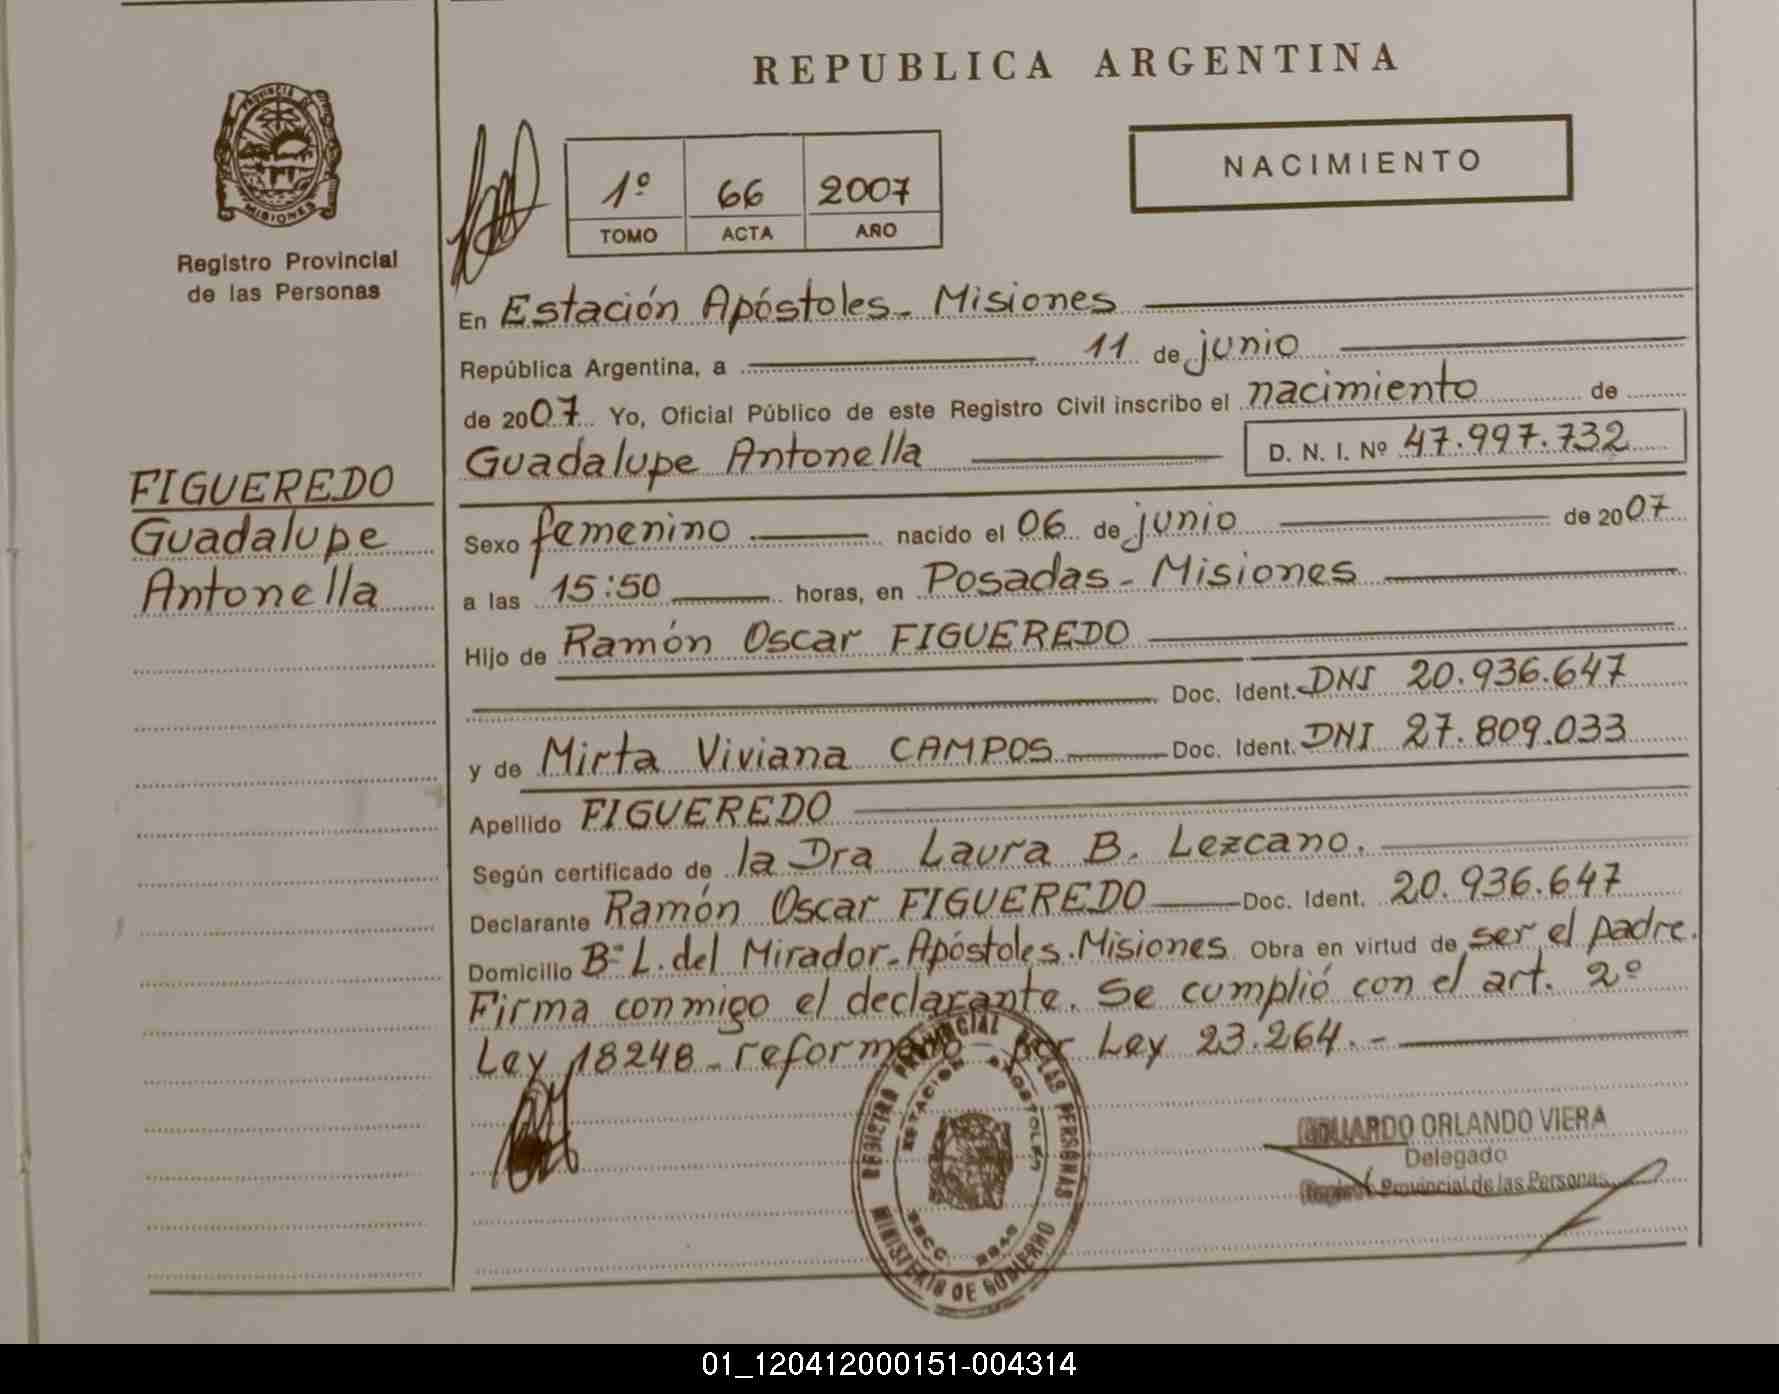 REPUBLICA ARGENTINA
PROVINCIA DE
MISIONES
Registro Provincial
de las Personas
1º 66 2007
TOMO ACTA AÑO
NACIMIENTO
En Estación Apóstoles - Misiones
República Argentina, a 11 de junio
de 2007 Yo, Oficial Público de este Registro Civil inscribo el nacimiento de
Guadalupe Antonella D. N. I. Nº 47.997.732
FIGUEREDO
Guadalupe
Antonella
Sexo femenino nacido el 06 de junio de 2007
a las 15:50 horas, en Posadas - Misiones
Hijo de Ramón Oscar FIGUEREDO
Doc. Ident. DNI 20.936.647
y de Mirta Viviana CAMPOS Doc. Ident. DNI 27.809.033
Apellido FIGUEREDO
Según certificado de la Dra Laura B. Lezcano.
Declarante Ramón Oscar FIGUEREDO Doc. Ident. 20.936.647
Domicilio Bº L. del Mirador - Apóstoles. Misiones Obra en virtud de ser el padre.
Firma conmigo el declarante. Se cumplió con el art. 2º
Ley 18248 - reformado por Ley 23.264.-
REGISTRO PROVINCIAL DE LAS PERSONAS
ESTACION APOSTOLES
MINISTERIO DE GOBIERNO
EDUARDO ORLANDO VIERA
Delegado
Registro Provincial de las Personas
01_120412000151-004314